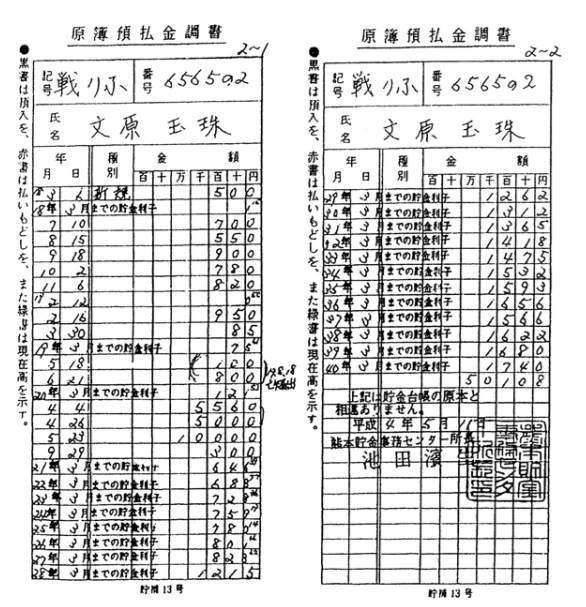 原簿預払金調書
2~1
●黒書は預入を、赤書は払いもどしを、また緑書は現在高を示す。
記号 戦りふ 番号 6565902
氏名 文原玉珠
年月日 種別 金額
百 十 万 千 百 十 円
新規 500
18年3月までの貯金利子
7 10 700
8 15 550
9 18 900
10 2 780
11 6 820
2 12
2 16 950
3 30 85
19年3月までの貯金利子
5 18 100
6 21 800
20年3月までの貯金利子
4 4 5560
4 26 5000
5 23 10000
9 29 300
21年3月までの貯金利子
22年3月までの貯金利子
23年3月までの貯金利子
24年3月までの貯金利子
25年3月までの貯金利子
26年3月までの貯金利子
27年3月までの貯金利子
28年3月までの貯金利子 1215
貯関13号
原簿預払金調書
2~2
●黒書は預入を、赤書は払いもどしを、また緑書は現在高を示す。
記号 戦りふ 番号 6565902
氏名 文原玉珠
年月日 種別 金額
百 十 万 千 百 十 円
29年3月までの貯金利子 1262
30年3月までの貯金利子 1312
31年3月までの貯金利子 1365
32年3月までの貯金利子 1418
33年3月までの貯金利子 1475
34年3月までの貯金利子 1532
35年3月までの貯金利子 1593
36年3月までの貯金利子 1656
37年3月までの貯金利子 1566
38年3月までの貯金利子 1622
39年3月までの貯金利子 1680
40年3月までの貯金利子 1740
50108
上記は貯金台帳の原本と
相違ありません。
平成4年5月
熊本貯金事務センター所長
池田濱
貯関13号